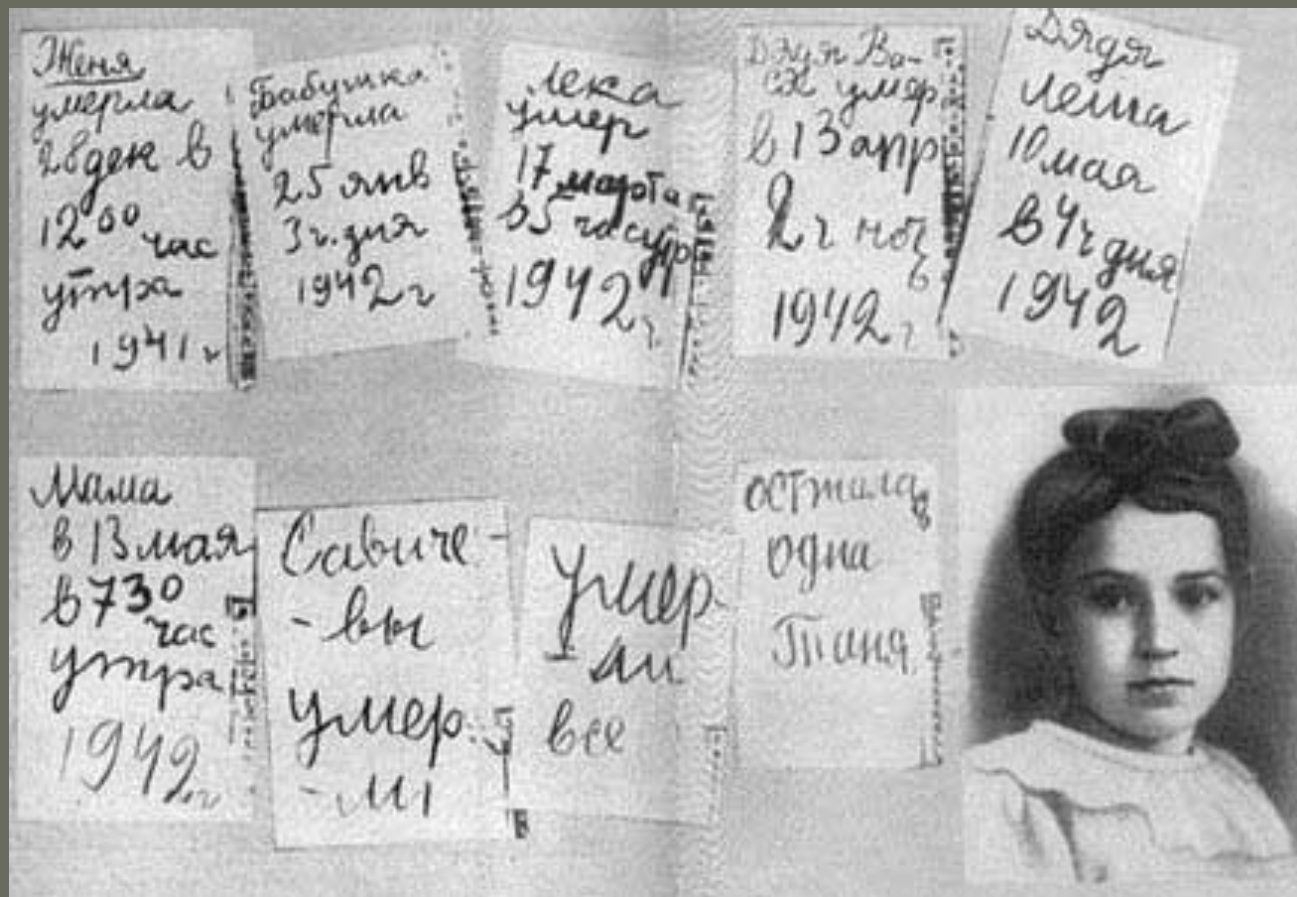 Женя
умерла
28 дек в
12 00 час
утра
1941 г
Бабушка
умерла
25 янв
3 ч. дня
1942 г
Лека
умер
17 марта
в 5 час утр
1942 г
Дядя Ва-
ся умер
в 13 апр
2 ч ноч
1942 г
Дядя
Леша
10 мая
в 4 ч дня
1942
Мама
в 13 мая
в 7 30
час
утра
1942 г
Савиче-
- вы
умер
- ли
умер
- ли
все
осталась
одна
Таня